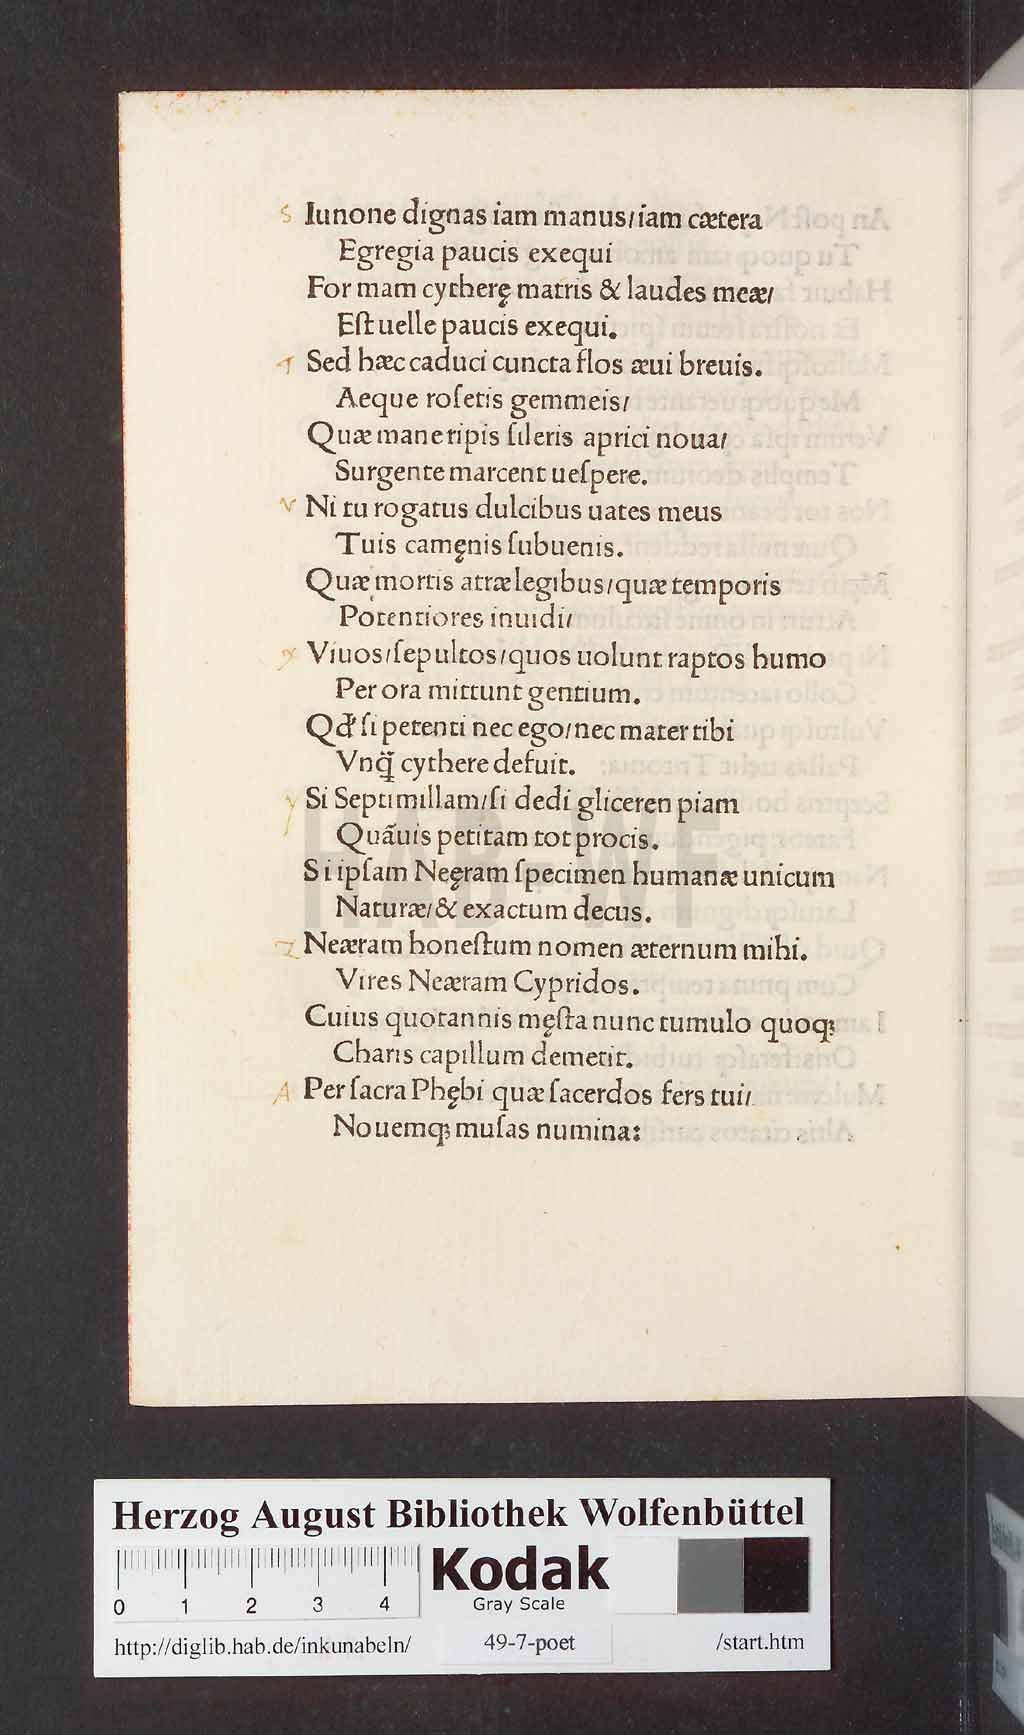 S Iunone dignas iam manus/iam cætera
Egregia paucis exequi
For mam cytherę matris & laudes meæ/
Eſt uelle paucis exequi.
T Sed hæc caduci cuncta flos æui breuis.
Aeque roſetis gemmeis/
Quæ mane ripis ſileris aprici noua/
Surgente marcent ueſpere.
V Ni tu rogatus dulcibus uates meus
Tuis camęnis ſubuenis.
Quæ mortis atræ legibus/quæ temporis
Potentiores inuidi/
X Viuos/ſepultos/quos uolunt raptos humo
Per ora mittunt gentium.
Qd' ſi petenti nec ego/nec mater tibi
Vnq̃ cythere defuit.
y Si Septimillam/ſi dedi gliceren piam
Quãuis petitam tot procis.
Si ipſam Neęram ſpecimen humanæ unicum
Naturæ/& exactum decus.
Z Neæram honeſtum nomen æternum mihi.
Vires Neæram Cypridos.
Cuius quotannis męſta nunc tumulo quoq;
Charis capillum demetit.
A Per ſacra Phębi quæ ſacerdos fers tui/
Nouemq; muſas numina:
HAB-WF
Herzog August Bibliothek Wolfenbüttel
0 1 2 3 4
Kodak
Gray Scale
http://diglib.hab.de/inkunabeln/ 49-7-poet /start.htm